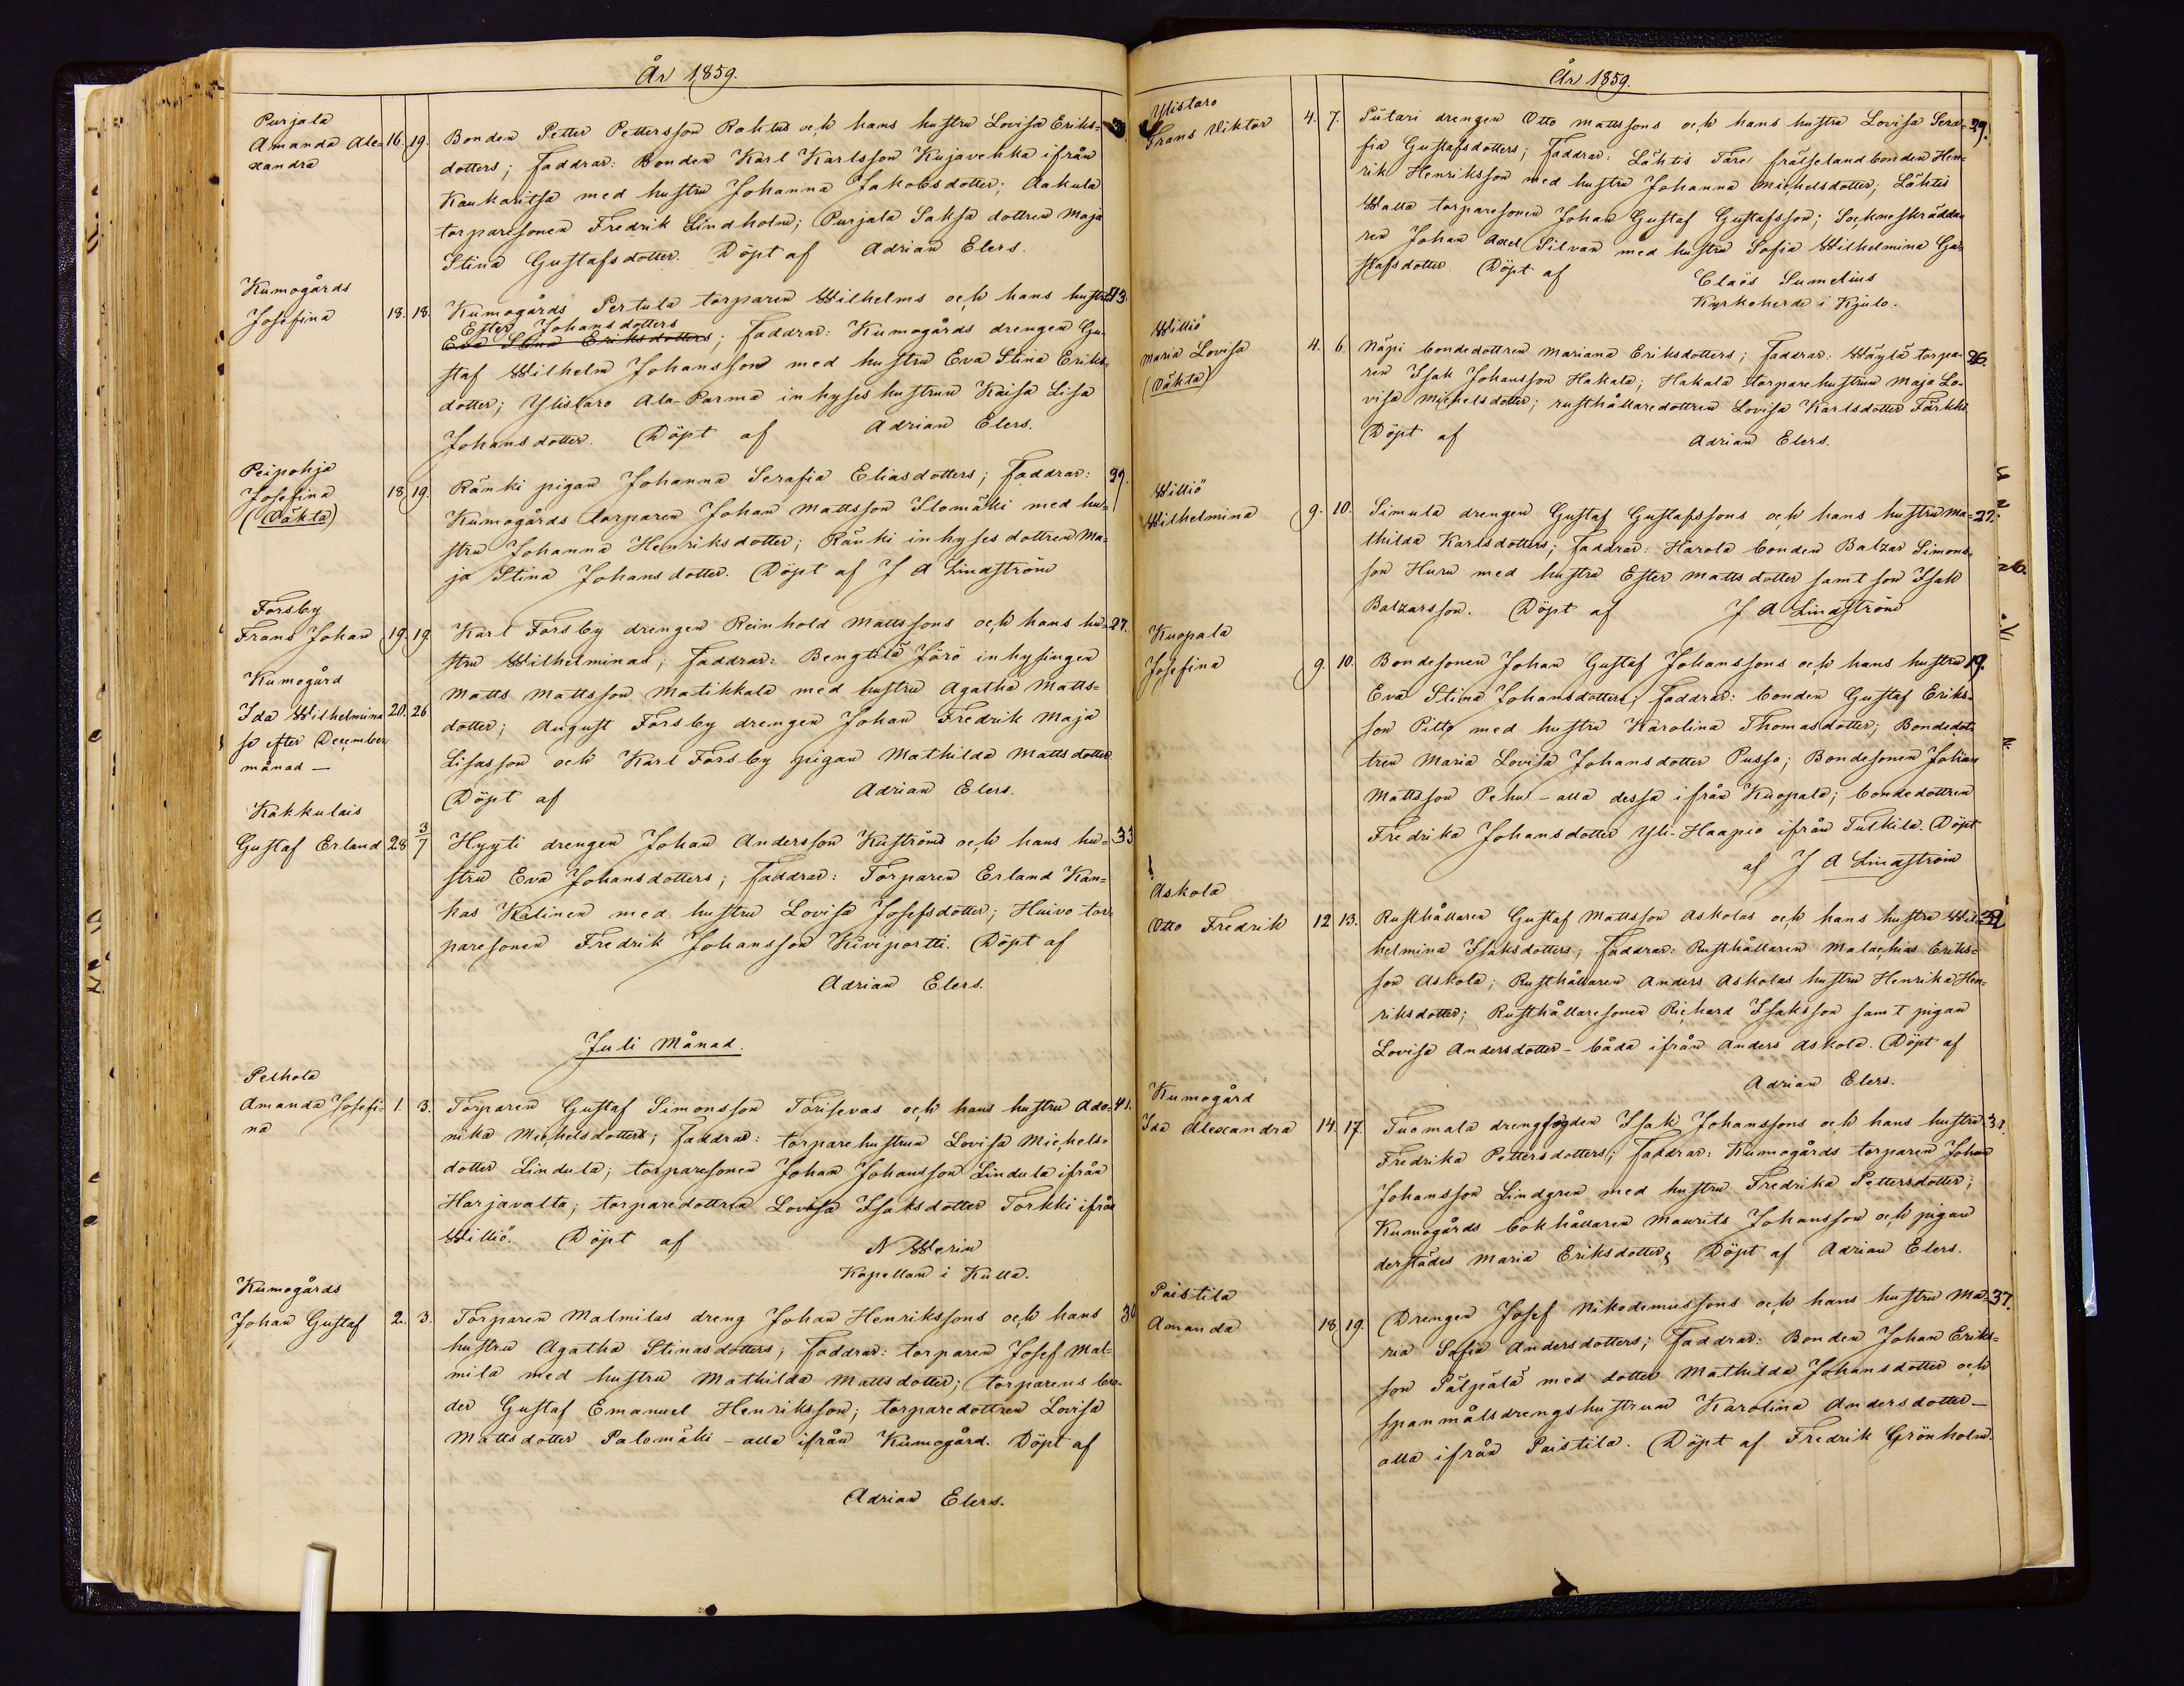 År 1859.
Purjala
Amanda Ale-
xandra
16. 19.
Bonden Petter Pettersson Rahtus och hans hustru Lovisa Eriks=
dotters; Faddrar: Bonden Karl Karlsson Kujavehka ifrån
Kaukaritsa med hustru Johanna Jakobsdotter; Aakula
torparesonen Fredrik Lindholm; Purjala Saksa dottren Maja
Stina Gustafsdotter. Döpt af Adrian Elers.
Kumogårds
Josefina
18. 18.
Kumogårds Pertula torparen Wilhelms och hans hustru
Ester Johansdotters
Eva Stina Eriksdotters; Faddrar: Kumogårds drengen Gu-
staf Wilhelm Johansson med hustru Eva Stina Eriks-
dotter; Ylistaro Ala-Parma inhyses hustrun Kaisa Lisa
Johansdotter. Döpt af Adrian Elers.
Peipohja
Josefina
(Oäkta)
18. 19.
Ränki pigan Johanna Serafia Eliasdotters; Faddrar: 29.
Kumogårds torparen Johan Mattsson Ilomäki med hu-
stru Johanna Henriksdotter; Ränki inhyses dottren Ma-
ja Stina Johansdotter. Döpt af J A Lindström
Forsby
Frans Johan
19. 19.
Karl Forsby drengen Reinhold Mattssons och hans hu- 27.
stru Wilhelminas; Faddrar: Bengtilä Jörö inhysingen
Matts Mattsson Matikkala med hustru Agatha Matts-
dotter; August Forsby drengen Johan Fredrik Maja
Lisasson och Karl Forsby pigan Mathilda Mattsdotter.
Döpt af Adrian Elers.
Kumogård
Ida Wilhelmina 20. 26
se efter December
månad —
Kakkulais
Gustaf Erland 28 3/7
Hyyti drengen Johan Andersson Kuströms och hans hu= 33
stru Eva Johansdotters; Faddrar: Torparen Erland Kan-
kas Kalinen med hustru Lovisa Josefsdotter; Huivo tor-
paresonen Fredrik Johansson Kiviportti. Döpt af
Adrian Elers.
Juli Månad.
Pelhola
Amanda Josefi-
na
1. 3.
Torparen Gustaf Simonsson Torisevas och hans hustru Ado= 41.
nika Michelsdotters; Faddrar: torparehustrun Lovisa Michels-
dotter Lindula; torparesonen Johan Johansson Lindula ifrån
Harjavalta; torparedottren Lovisa Isaksdotter Torkki ifrån
Williö. Döpt af N Werin
Kapellan i Kulla.
Kumogårds
Johan Gustaf
2. 3.
Torparen Malmilas dreng Johan Henrikssons och hans 30
hustru Agatha Stinasdotters; Faddrar: torparen Josef Mal-
mila med hustru Mathilda Mattsdotter; torparens bro-
der Gustaf Emanuel Henriksson; torparedottren Lovisa
Mattsdotter Palomäki – alla ifrån Kumogård. Döpt af
Adrian Elers.
År 1859.
Ylistaro
Frans Viktor
4. 7.
Putari drengen Otto Mattssons och hans hustru Lovisa Sera- 29.
fia Gustafsdotters; Faddrar: Lähtis Tare frälselandbonden Hen-
rik Henriksson med hustru Johanna Michelsdotter; Lähtis
Walla torparesonen Johan Gustaf Gustafsson; Sockneskrädda-
ren Johan Axel Silvan med hustru Sofia Wilhelmina Gu-
stafsdotter. Döpt af Claës Sumelius
Kyrkoherde i Kjulo.
Williö
Maria Lovisa
(Oäkta)
4. 6.
Näpi bondedottren Mariana Eriksdotters; Faddrar: Wäylä torpa- 26.
ren Isak Johansson Hakala; Hakala torparehustrun Maja Lo-
visa Michelsdotter; rusthållaredottren Lovisa Karlsdotter Färkki
Döpt af Adrian Elers.
Williö
Wilhelmina
9. 10.
Simula drengen Gustaf Gustafssons och hans hustru Ma- 27.
thilda Karlsdotters; Faddrar: Harola bonden Balzar Simons-
son Huru med hustru Ester Mattsdotter samt son Isak
Balzarsson. Döpt af J A Lindström
Kuopala
Josefina
9. 10.
Bondesonen Johan Gustaf Johanssons och hans hustru 19.
Eva Stina Johansdotters; Faddrar: bonden Gustaf Eriks-
son Pitto med hustru Karolina Thomasdotter; Bondedot-
tren Maria Lovisa Johansdotter Pusso; Bondesonen Johan
Mattsson Pehu – alla dessa ifrån Kuopala; bondedottren
Fredrika Johansdotter Yli-Haapio ifrån Tulkila. Döpt
af J A Lindström
Askola
Otto Fredrik
12 13.
Rusthållaren Gustaf Mattsson Askolas och hans hustru Wil-
helmina Isaksdotters; Faddrar: Rusthållaren Malachias Eriks=
son Askola; Rusthållaren Anders Askolas hustru Henrika Hen-
riksdotter; Rusthållaresonen Richard Isaksson samt pigan
Lovisa Andersdotter – båda ifrån Anders Askola. Döpt af
Adrian Elers.
Kumogård
Ida Alexandra
14. 17.
Tuomala drengfogden Isak Johanssons och hans hustru 31.
Fredrika Pettersdotters; Faddrar: Kumogårds torparen Johan
Johansson Lindgren med hustru Fredrika Pettersdotter;
Kumogårds bokhållaren Maurits Johansson och pigan
derstädes Maria Eriksdotter; Döpt af Adrian Elers.
Paistila
Amanda
18. 19.
Drengen Josef Nikodemussons och hans hustru Ma- 37.
ria Sofia Andersdotters; Faddrar: Bonden Johan Eriks-
son Pälpälä med dotter Mathilda Johansdotter och
spanmålsdrengshustrun Karolina Andersdotter –
alla ifrån Paistila. Döpt af Fredrik Grönholm.